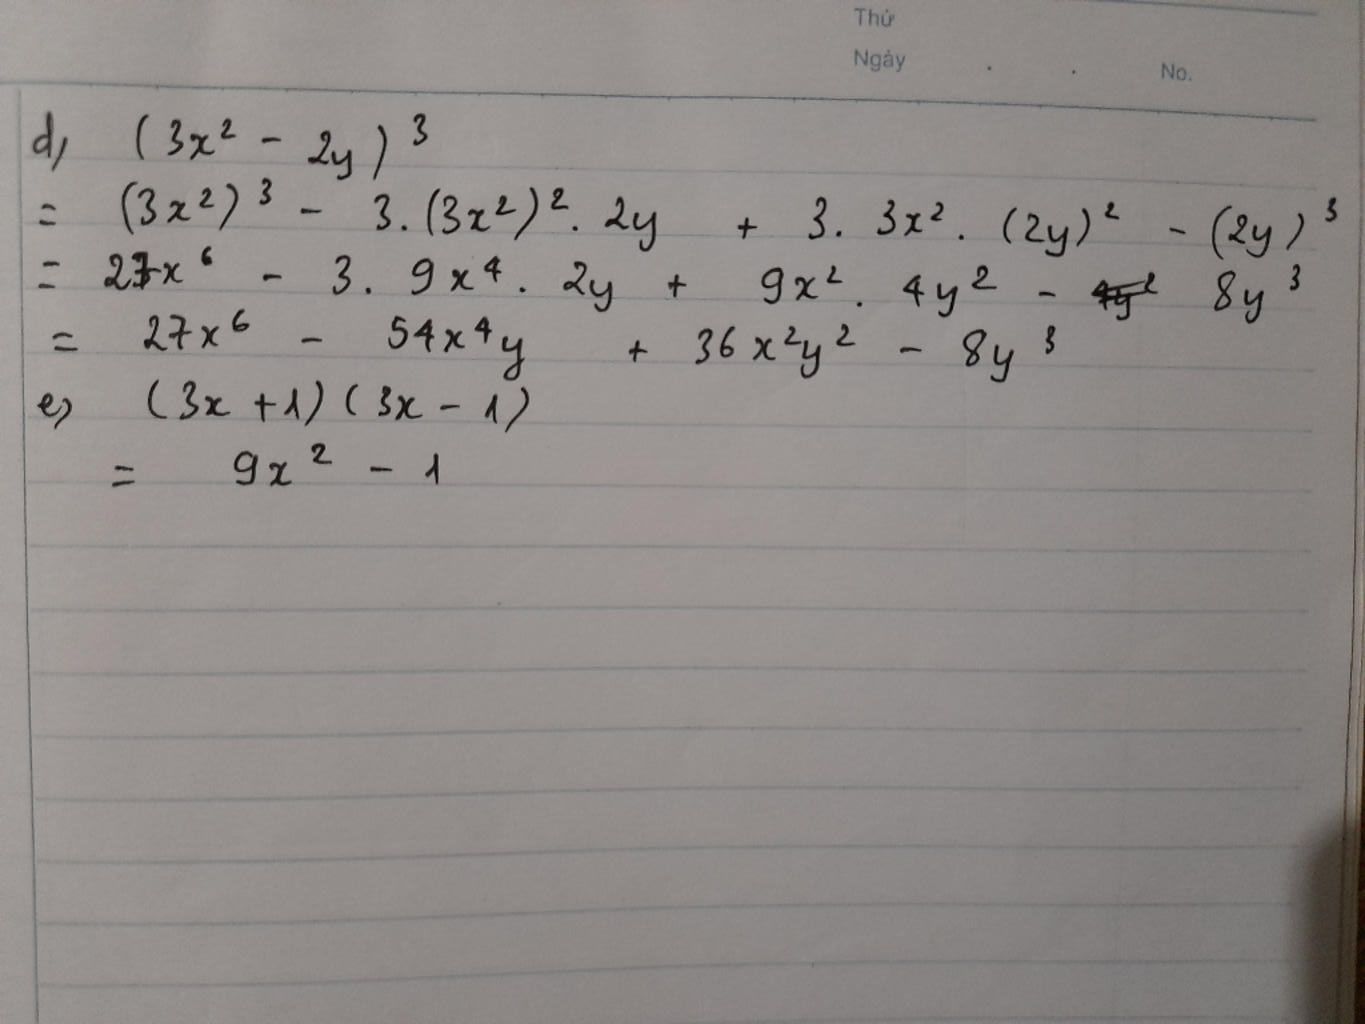 Thứ
Ngày . . No.
d, (3x² - 2y)³
= (3x²)³ - 3.(3x²)². 2y + 3. 3x². (2y)² - (2y)³
= 27x⁶ - 3. 9x⁴. 2y + 9x². 4y² - 8y³
= 27x⁶ - 54x⁴y + 36x²y² - 8y³
e, (3x + 1)(3x - 1)
= 9x² - 1